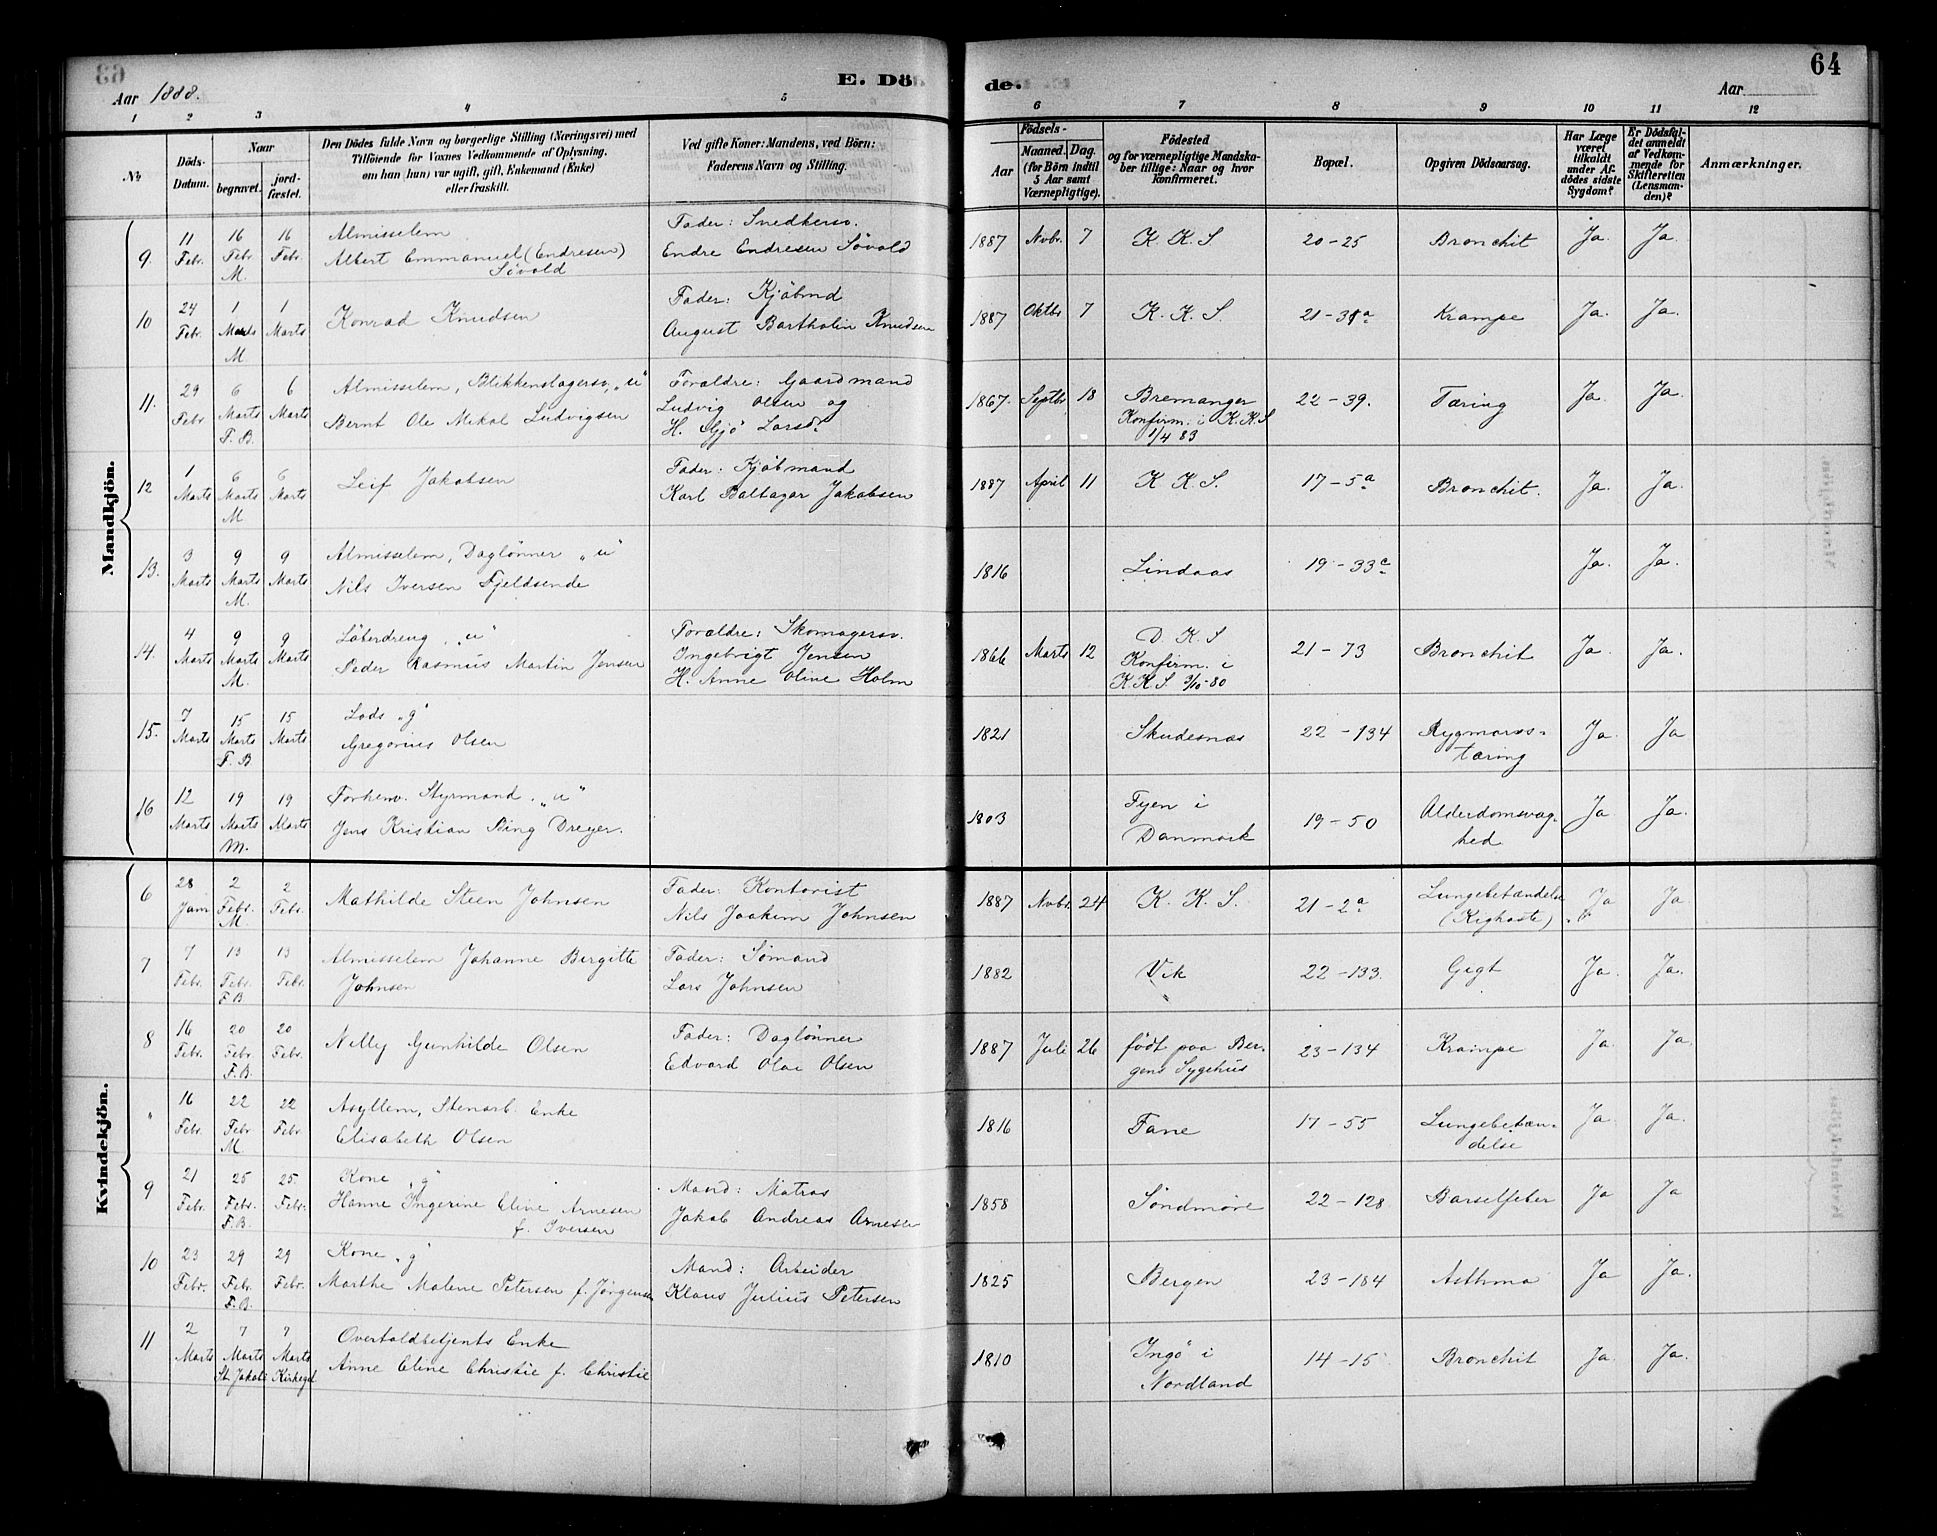 Aar 1888.
E. Döde.
Aar
64
1 2 3 4 5 6 7 8 9 10 11 12
No.
Döds-Datum.
Naar
begravet.
jordfæstet.
Den Dödes fulde Navn og borgerlige Stilling (Næringsvei) med
Tilföiende for Voxnes Vedkommende af Oplysning,
om han (hun) var ugift, gift, Enkemand (Enke)
eller fraskilt.
Ved gifte Koner: Mandens, ved Börn:
Faderens Navn og Stilling.
Födsels-
Aar
Maaned. Dag.
(for Börn indtil
5 Aar samt
Værnepligtige).
Födested
og for værnepligtige Mandska-
ber tillige: Naar og hvor
konfirmeret.
Bopæl.
Opgiven Dödsaarsag.
Har Læge
været
tilkaldt
under Af-
dödes sidste
Sygdom?
Er Dödsfal-
det anmeldt
af Vedkom-
mende for
Skifteretten
(Lensman-
den)?
Anmærkninger.
Mandkjön.
9. 11 Febr. 16 Febr. M. 16 Febr.
Almisselem
Albert Emmanuel (Endresen)
Søvold
Fader: Snedkersv.
Endre Endresen Søvold
1887 Novbr. 7 K. K. S 20-25 Bronchit Ja. Ja.
10 24 Febr. 1 Marts M. 1 Marts
Konrad Knudsen
Fader: Kjøbmd
August Bartholin Knudsen
1887 Oktbr 7 K. K. S. Krampe Ja. Ja.
11. 29 Febr 6 Marts F. B. 6 Marts
Almisselem, Blikkenslagersv. „u"
Bernt Ole Mikal Ludvigsen
Forældre: Gaardmand
Ludvig Olsen og
H. Gjø Larsdr
1867. Septbr 18 Bremanger
Konfirm. i K. K. S
1/4 83
22-39. Tæring Ja. Ja.
12 1 Marts 6 Marts M 6 Marts
Leif Jakobsen
Fader: Kjøbmand
Karl Baltazar Jakobsen
1887 April 11 K. K. S. 17-5a Bronchit. Ja. Ja.
13. 3 Marts 9 Marts M. 9 Marts
Almisselem, Daglønner „u"
Nils Iversen Fjeldsende
1816 Lindaas 19-33c Ja. Ja.
14. 4 Marts 9 Marts M. 9 Marts
Løberdreng. „u"
Peder Rasmus Martin Jensen
Forældre: Skomagersv.
Ingebrigt Jensen
H. Anne Oline Holm
1866 Marts 12 D. K. S
Konfirm. i
K. K. S 3/10-80
21-73 Bronchit Ja. Ja.
15. 7 Marts 15 Marts F. B 15 Marts
Lods „g"
Gregorius Olsen
1821 Skudesnæs 22-134 Rygmarvs-
tæring
Ja. Ja
16 12 Marts 19 Marts M. 19 Marts
Forhenv. Styrmand. „u"
Jens Kristian Bing Dreyer.
1803 Fyen i
Danmark
19-50 Alderdomsvag-
hed
Ja Ja.
Kvindekjön.
6 28 Janr 2 Febr. M. 2 Febr.
Mathilde Steen Johnsen
Fader: Kontorist
Nils Joakim Johnsen
1887 Novbr. 24 K. K. S. 21-2a Lungebetændelse
(Kighoste)
Ja Ja
7 7 Febr. 13 Febr. F. B 13 Febr.
Almisselem Johanne Birgitte
Johnsen
Fader: Sømand
Lars Johnsen
1882 Vik 22-133. Gigt Ja. Ja.
8 16 Febr. 20 Febr. F. B. 20 Febr.
Nelly Gunhilde Olsen
Fader: Daglønner
Edvard Olai Olsen
1887 Juli 26 født paa Ber-
gens Sygehus
23-134 Krampe Ja. Ja.
" 16 Febr. 22 Febr M. 22 Febr.
Asyllem, Stenarb. Enke
Elisabeth Olsen
1816 Fane 17-55 Lungebetæn-
delse
Ja. Ja.
9 21 Febr. 25 Febr. F. B. 25. Febr.
Kone „g"
Hanne Ingerine Eline Arnesen
f. Iversen
Mand: Matros
Jakob Andreas Arnesen
1858 Søndmøre 22-128 Barselfeber Ja Ja
10 23 Febr. 29 Febr. F. B. 29 Febr.
Kone „g"
Marthe Malene Petersen f. Jørgensen
Mand: Arbeider
Klaus Julius Petersen
1825 Bergen 23-184 Asthma Ja Ja.
11 2 Marts 7 Marts 7 Marts
St. Jakobs Kirkegd
Overtoldbetjents Enke
Anne Eline Christie f. Christie
1810 Ingø i
Nordland
14-15 Bronchit Ja. Ja.